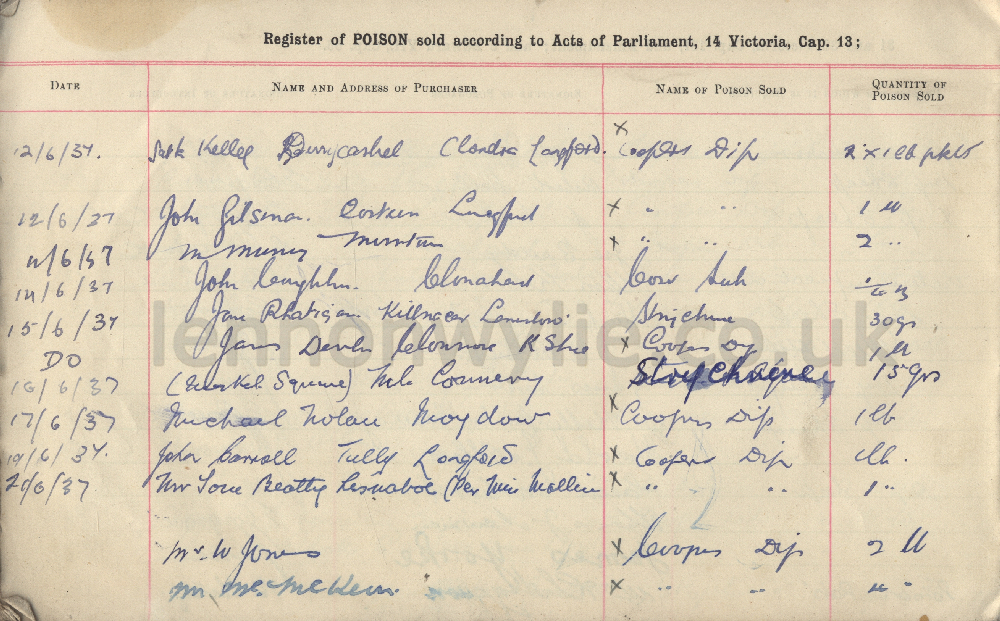 Register of POISON sold according to Acts of Parliament, 14 Victoria, Cap. 13;
DATE NAME AND ADDRESS OF PURCHASER NAME OF POISON SOLD QUANTITY OF POISON SOLD
12/6/37. Kelleg Derrycashel Clondra Longford. x Coopers Dip 2 x 1lb pkts
12/6/37 John Gilsenan. Corkeen Longford x " " 1 lb
11/6/37 M x " " 2 "
14/6/37 John Laughlin. Clonahard
15/6/37 Rhatigan Killnacor Strychnine 30grs
DO James Devlin x Coopers Dip 1 lb
16/6/37 (Market Square) Mr Connery Strychnine 15grs
17/6/37 Michael Nolan Moydow x Coopers Dip 1lb
19/6/37. John Carroll Tully Longford x Coopers Dip 1lb.
20/6/37 Beatty (Per Miss x " " 1 "
Mr. W Jones x Coopers Dip 2 lb
McKeon. x " " " "
lennonwylie.co.uk